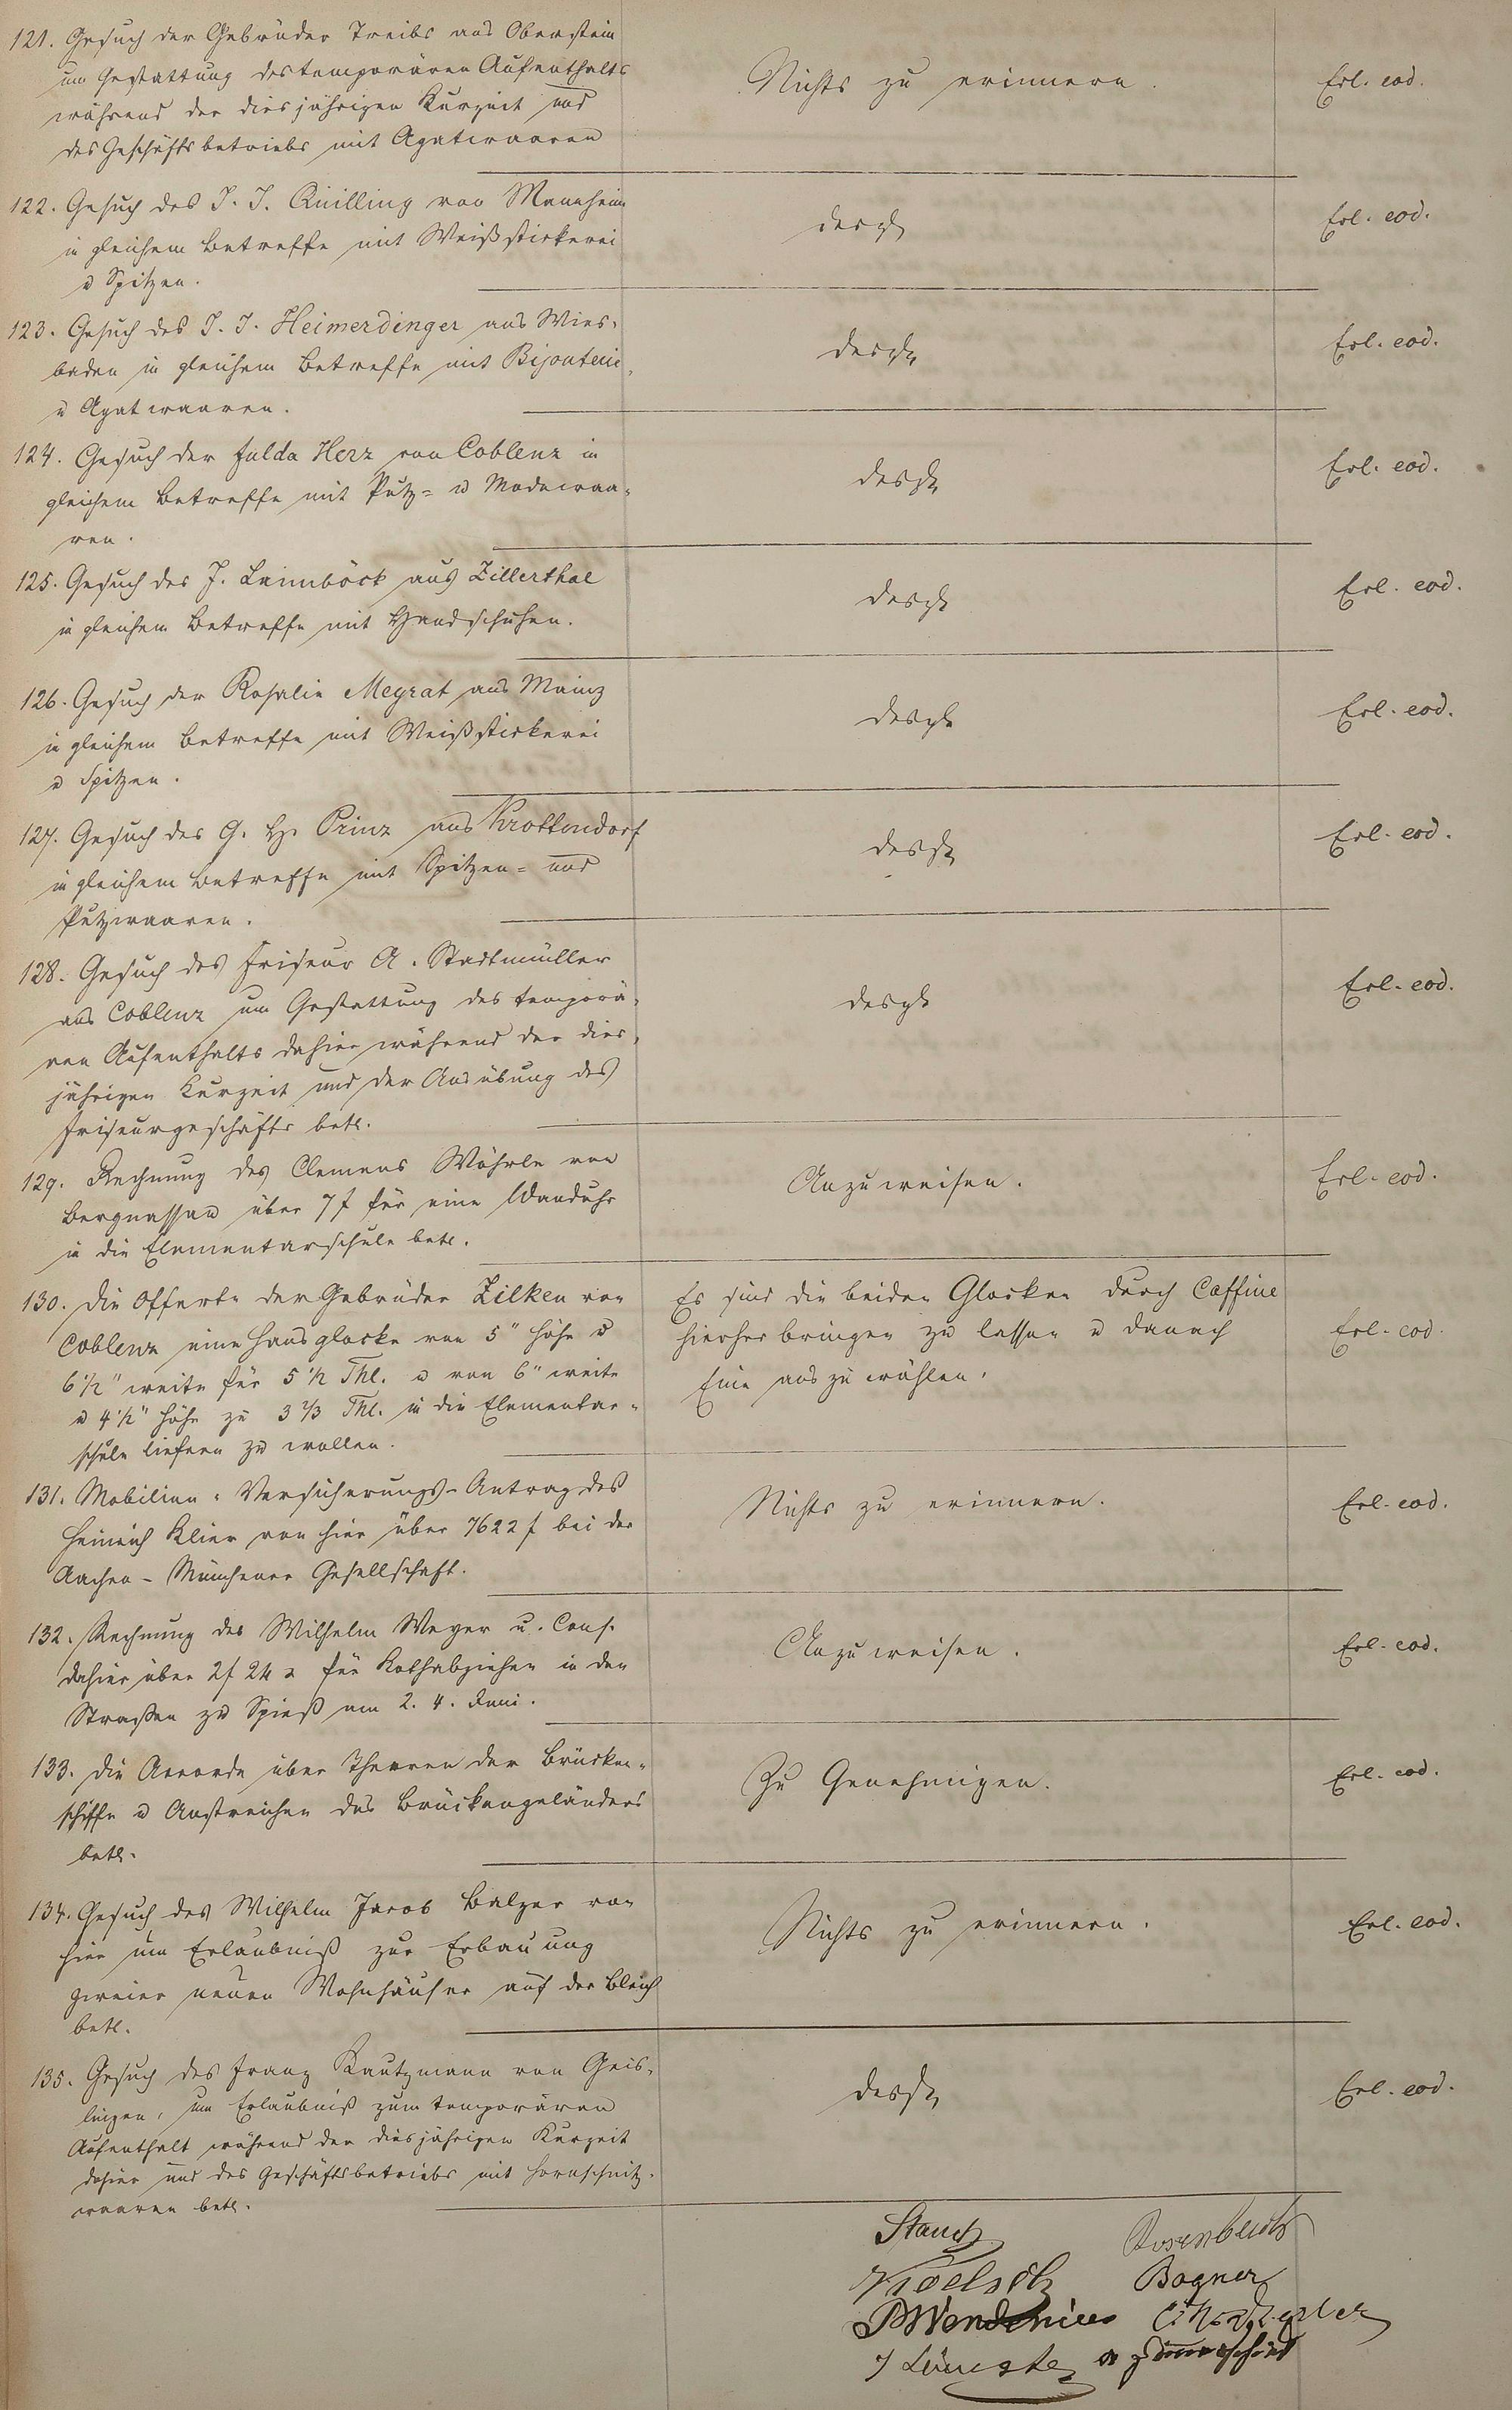 121. Gesuch der Gebrüder Treibs aus Oberstein
um Gestattung des temporären Aufenthalts
während der diesjährigen Kurzeit und
des Geschäftsbetriebs mit Agatwaaren
Nichts zu erinnern.
Erl. eod.
122. Gesuch des J. J. Quilling von Mannheim
in gleichem Betreffe mit Weißstickerei
u Spitzen.
desgl
Erl. eod.
123. Gesuch des J. J. Heimerdinger aus Wies-
baden in gleichem Betreffe mit Bijouterie
u Agatwaaren.
desgl
Erl. eod.
124. Gesuch der Julda Herz von Coblenz in
gleichem Betreffe mit Putz- u Modewaa-
ren.
desgl
Erl. eod.
125. Gesuch des J. Leimböck aus Zillerthal
in gleichem Betreffe mit Handschuhen.
desgl
Erl. eod.
126. Gesuch der Rosalie Meyrat aus Mainz
in gleichem Betreffe mit Weißstickerei
u Spitzen.
desgl
Erl. eod.
127. Gesuch des G. H. Prinz aus Krottendorf
in gleichem Betreffe mit Spitzen- und
Putzwaaren.
desgl
Erl. eod.
128. Gesuch des Friseur A. Stadtmüller
aus Coblenz um Gestattung des temporä-
ren Aufenthalts dahier während der dies-
jährigen Kurzeit und der Ausübung des
Friseurgeschäfts betr.
desgl
Erl. eod.
129. Rechnung des Clemens Wöhrle von
Bergnassau über 7 f für eine Wanduhr
in die Elementarschule betr.
Anzuweisen.
Erl. eod.
130. Die Offerte der Gebrüder Zilken von
Coblenz eine Hausglocke von 5" Höhe u
6 1/2" weite für 5 1/2 Thl. u von 6" weite
u 4 1/2" Höhe zu 3 2/3 Thl. in die Elementar-
schule liefern zu wollen.
Es sind die beiden Glocken durch Caffine
hierher bringen zu lassen u danach
Eine auszuwählen.
Erl. eod.
131. Mobilien-Versicherungs-Antrag des
Heinrich Klier von hier über 7622 f bei der
Aachen-Münchener Gesellschaft.
Nichts zu erinnern.
Erl. eod.
132. Rechnung des Wilhelm Weyer u. Cons.
dahier über 2 f 24 x für Kothabziehen in den
Straßen zu Spieß am 2. 4. Juni.
Anzuweisen.
Erl. eod.
133. Die Accorde über Theeren der Brücken-
schiffe u Anstreichen des Brückengeländers
betr.
Zu Genehmigen.
Erl. eod.
134. Gesuch des Wilhelm Jacob Balzer von
hier um Erlaubniß zur Erbauung
zweier neuen Wohnhäuser auf der Bleich
betr.
Nichts zu erinnern.
Erl. eod.
135. Gesuch des Franz Kautzmann von Geis-
lingen, um Erlaubniß zum temporären
Aufenthalt während der diesjährigen Kurzeit
dahier und des Geschäftsbetriebs mit Hornschnitz-
waaren betr.
desgl
Erl. eod.
Bogner